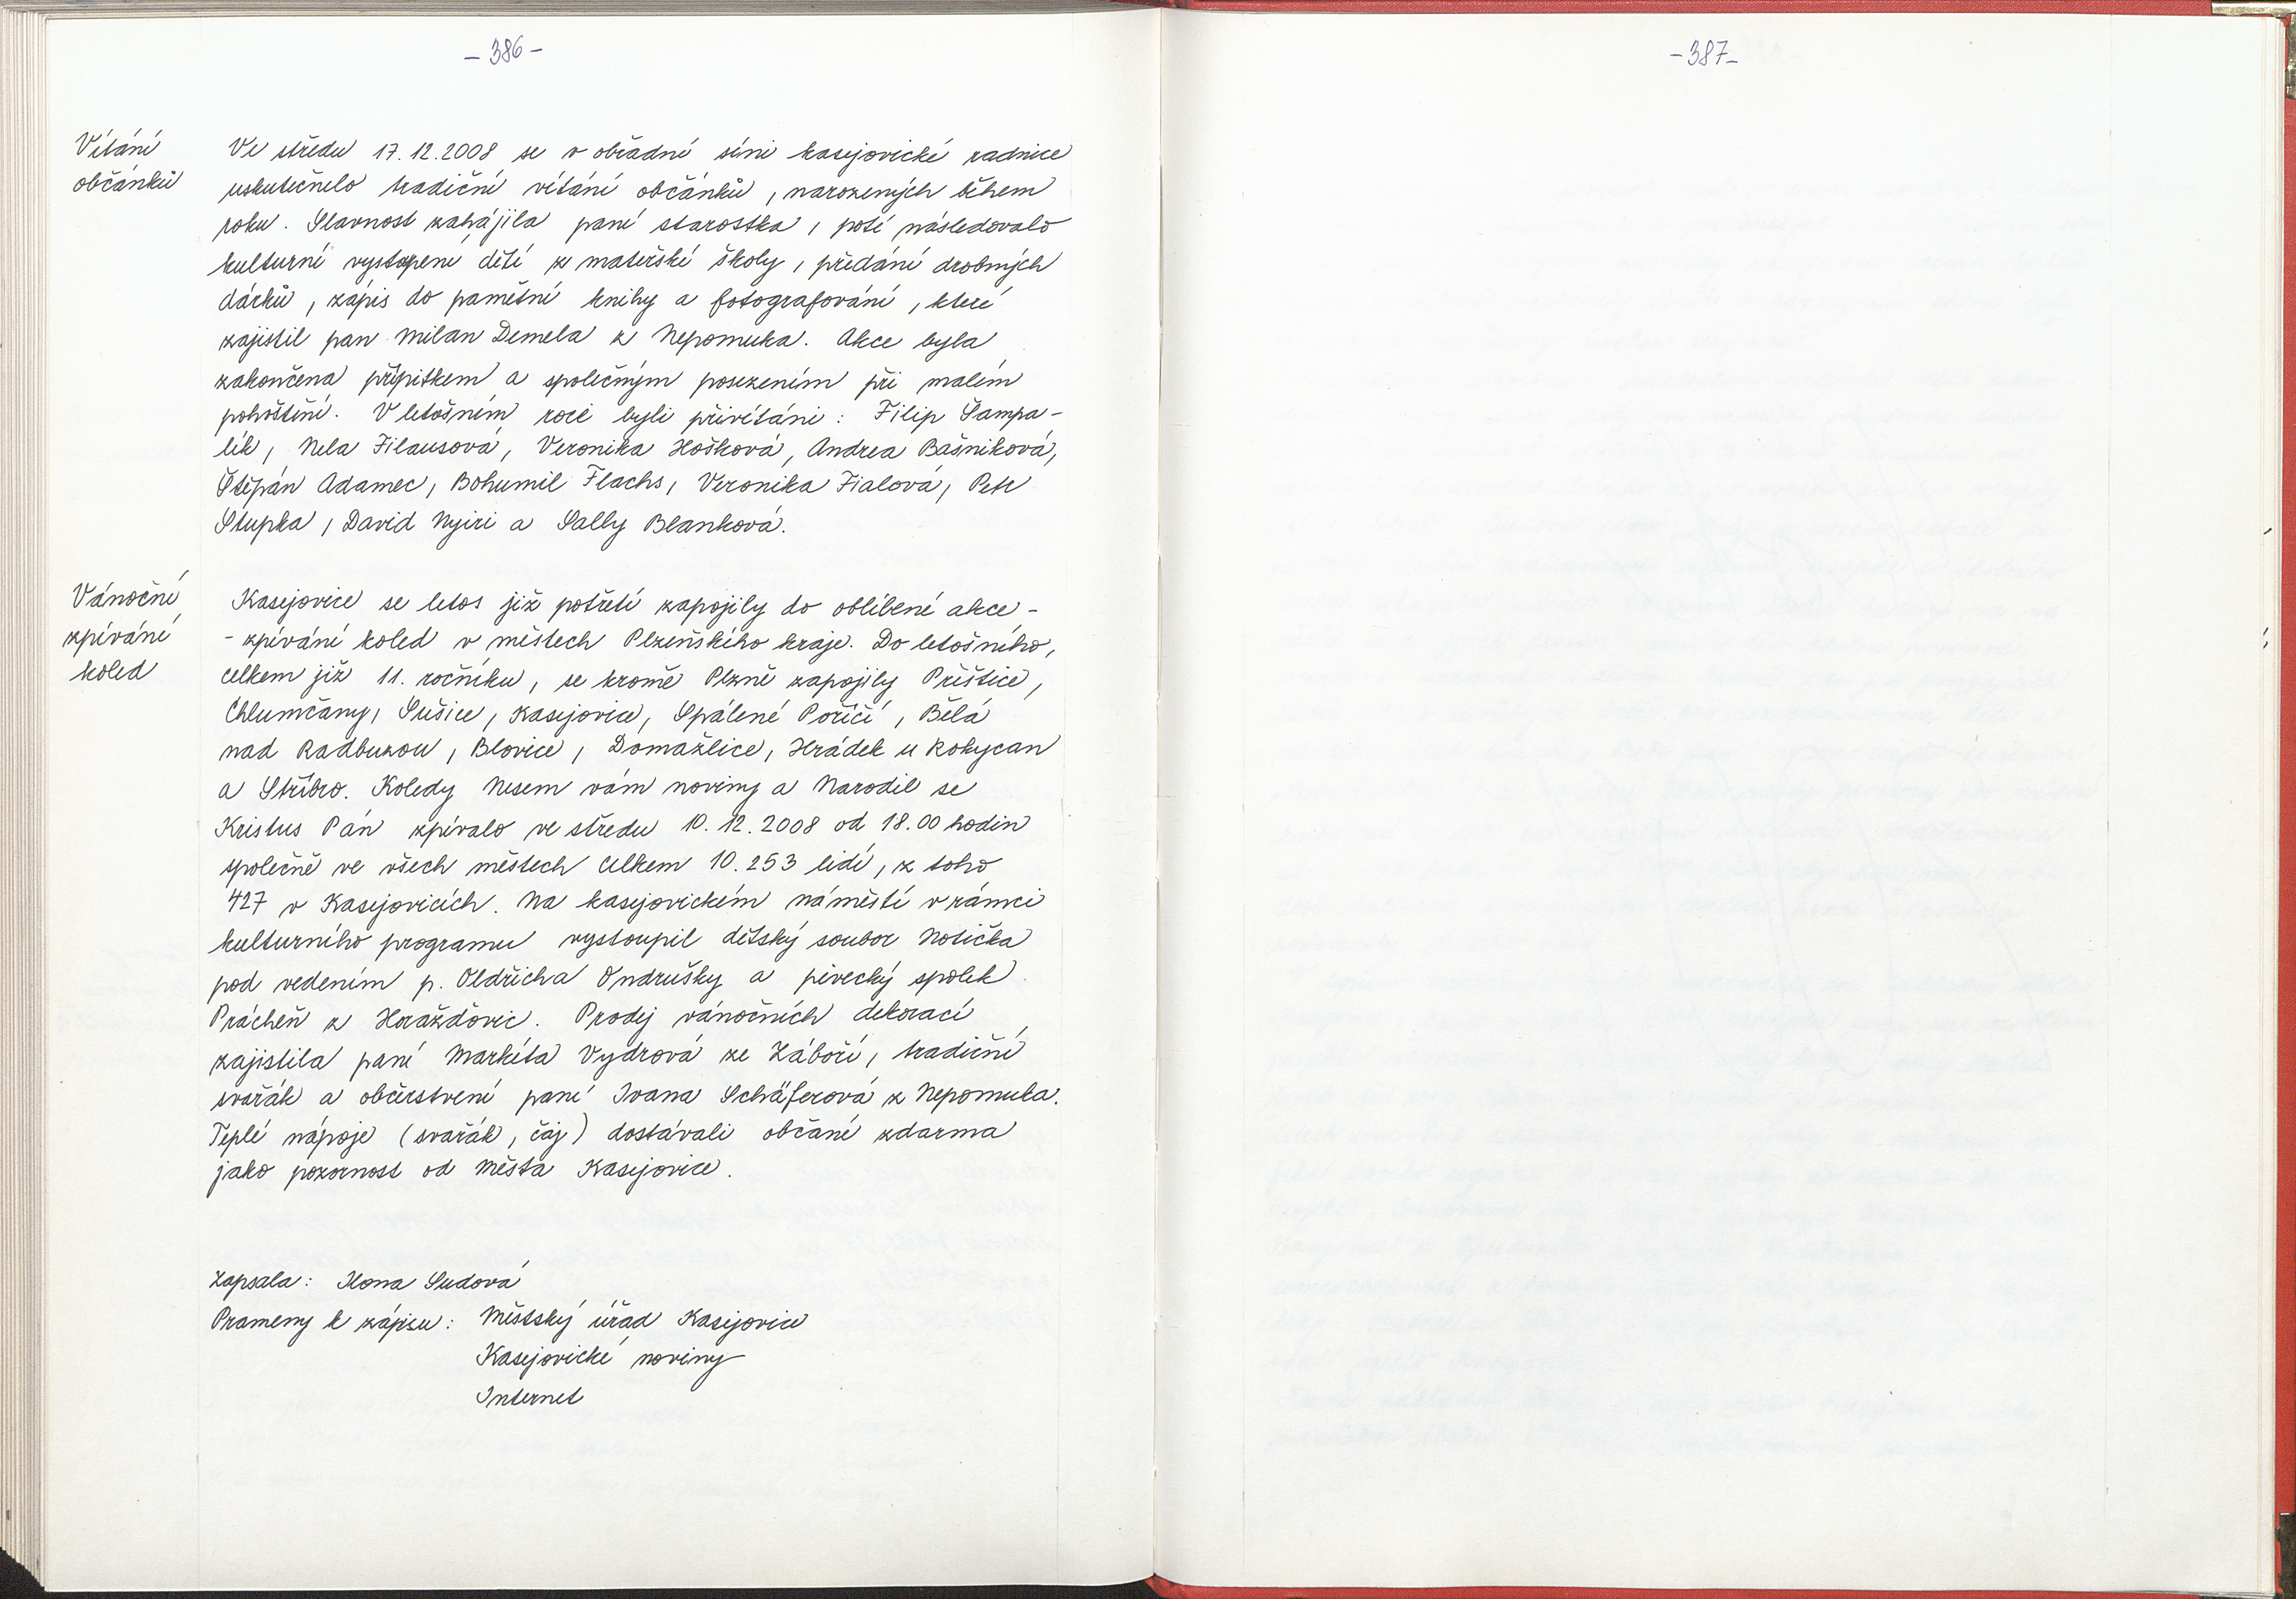 - 386 -
Vítání
občánků
Ve středu 17.12.2008 se v obřadní síni kasejovické radnice
uskutečnilo tradiční vítání občánků, narozených během
roku. Slavnost zahájila paní starostka, poté následovalo
kulturní vystoupení dětí ze mateřské školy, předání drobných
dárků, zápis do pamětní knihy a fotografování, které
zajistil pan Milan Demela z Nepomuka. Akce byla
zakončena přípitkem a společným posezením při malém
pohoštění. V letošním roce byli přivítáni: Filip Šampa-
lík, Nela Filausová, Veronika Hošková, Andrea Bašniková,
Štěpán Adamec, Bohumil Flachs, Veronika Fialová, Petr
Stupka, David Nyiri a Sally Blanková.
Vánoční
zpívání
koled
Kasejovice se letos již potřetí zapojily do oblíbené akce -
- zpívání koled v městech Plzeňského kraje. Do letošního,
celkem již 11. ročníku, se kromě Plzně zapojily Přeštice,
Chlumčany, Sušice, Kasejovice, Spálené Poříčí, Bělá
nad Radbuzou, Blovice, Domažlice, Hrádek u Rokycan
a Stříbro. Koledy Nesem vám noviny a Narodil se
Kristus Pán zpívalo ve středu 10.12.2008 od 18.00 hodin
společně ve všech městech celkem 10.253 lidí, z toho
427 v Kasejovicích. Na kasejovickém náměstí v rámci
kulturního programu vystoupil dětský soubor Notička
pod vedením p. Oldřicha Ondrušky a pěvecký spolek
Prácheň z Horažďovic. Prodej vánočních dekorací
zajistila paní Markéta Vydrová ze Záboří, tradiční
svařák a občerstvení paní Ivana Schäferová z Nepomuka.
Teplé nápoje (svařák, čaj) dostávali občané zdarma
jako pozornost od Města Kasejovice.
Zapsala: Ilona Sudová
Prameny k zápisu: Městský úřad Kasejovice
Kasejovické noviny
Internet
- 387 -